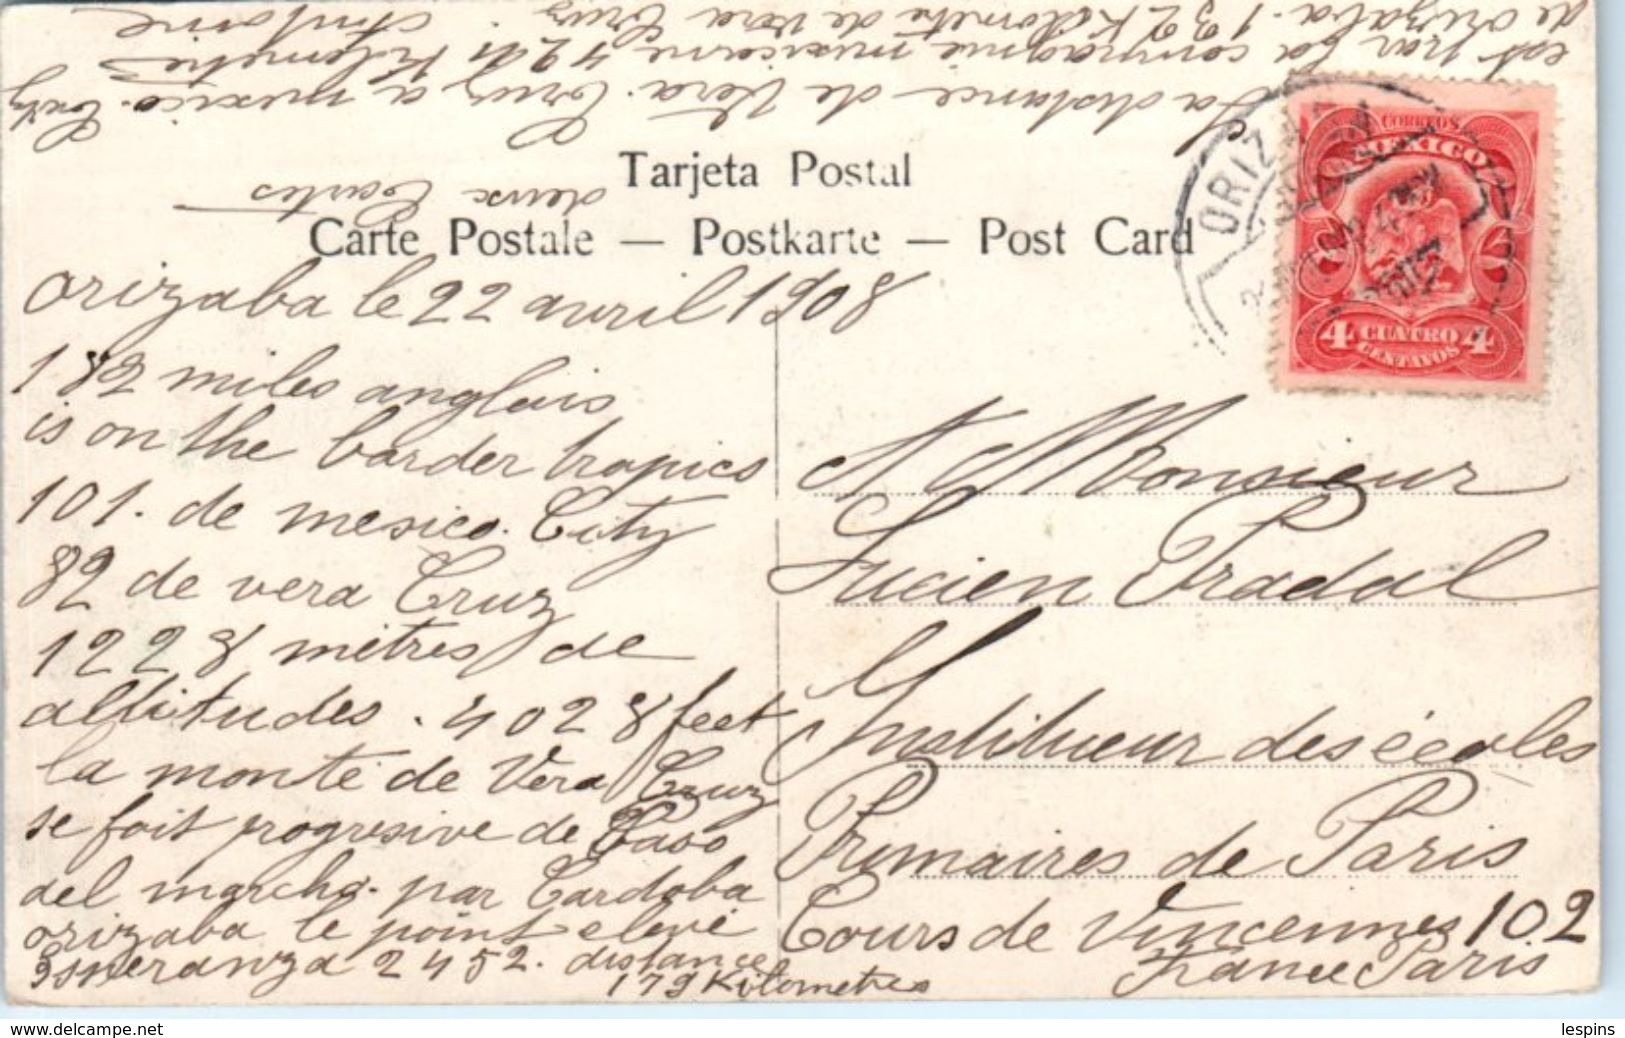 La distance de Vera. Cruz a mexico. City
est par la compagnie mexicaine 424 Kilometres
de orizaba. 132 Kilometre de Vera Cruz.
Antoine
deux Cartes
Tarjeta Postal
Carte Postale — Postkarte — Post Card
ORIZ
CORREOS
MEXICO
4 CUATRO 4
CENTAVOS
orizaba le 22 avril 1908
182 miles anglais
is on the border tropics
101. de mesico. City
82 de vera Cruz
1228 métres de
altitudes. 4028 feet
la monté de Vera Cruz
se fait progresive de Paso
del marcho. par Cordoba
orizaba le point elevé
Esperanza 2452. distance
179 Kilometres
A Monsieur
Lucien Pradal
Instituteur des écoles
Primaires de Paris
Cours de Vincennes 102
France Paris
delcampe.net
lespins